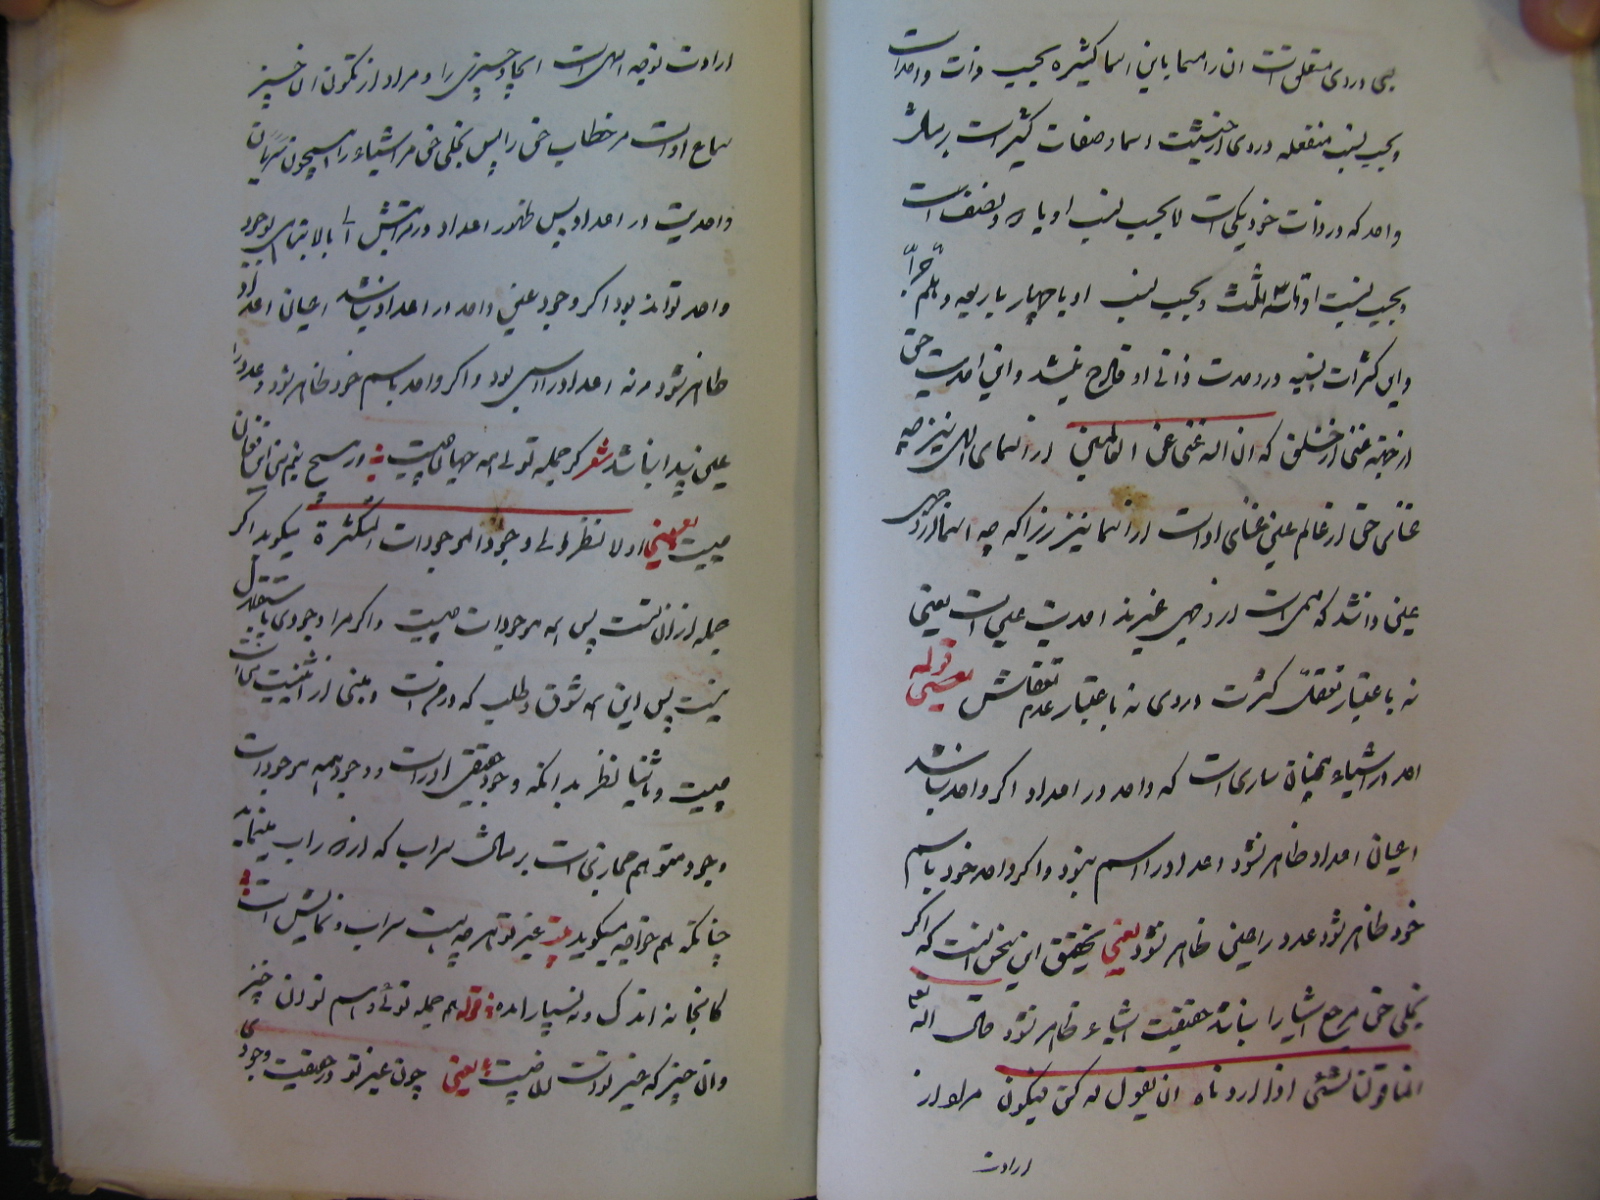 وی دروی متعلق است ان را مسما باین اسما کثیره بحیب ذات واحد است
و بحیب نسب منفعله دروی از حیثیت اسما و صفات کثیر است بر مثال
واحد که در ذات خود یکی است لا بحیب نسب او با دو نصف است
و بحیب نسبت او با سه ثلث و بحیب نسب او با چهار با ربعه و هلم جرا
و این کثرات نسبیه در وحدت ذاتی او قادح نیشد و این احدیت حق
از جهته غنی از خلق که ان الله غنی عن العالمین از اسمای الهی نیز چه
غنای حق از عالم عین غنای اوست از اسما نیز زیرا که چه اسما از وجهی
عین دانند که مسمی است از وجهی غیرند احدیت عین است یعنی
نه باعتبار تعقل کثرت دروی نه باعتبار عدم تعقلش قوله یعنی
احد در اشیاء همچنان ساری است که واحد در اعداد اگر واحد نباشد
اعیان اعداد ظاهر نشود اعداد را اسم نبود و اگر واحد خود باسم
خود ظاهر شود عدد را عینی ظاهر نشود یعنی تحقیق این سخن انست که اگر
تجلی حق مرجع اشیا را نباشد حقیقت اشیاء ظاهر نشود قال الله تعه
انما قولنا لشئی اذا اردناه ان یقول له کن فیکون مراد از
ارادت
ارادت توجه الهی است ایجاد چیزی را و مراد از تکون ان چیز
سماع اوست مر خطاب حق را پس تجلی حق مر اشیاء را همچون سریان
واحدیت در اعداد پس ظهور اعداد در مراتبش الی بالا یتناهی بوجود
واحد تواند بود اگر وجود عین واحد در اعداد نباشد اعیان اعداد
ظاهر نشود مرنه اعداد را اسم بود و اگر واحد باسم خود ظاهر شود عدد را
عین پیدا نباشد شعر گر جمله توئی همه جهان چیست ور هیچ نیم من این فغان
چیست یعنی اولا نظر الی وجود الموجودات المتکثرة میگوید اگر
جمله از ان تست پس همه موجودات چیست و اگر مرا وجودی باستقلال
نیست پس این همه شوق و طلب که در منست و مبنی از اثنینیت است
چیست و ثانیا نظر بدانکه وجود حقیقی اوراست و وجود همه موجودات
وجود متوهم مجازی است بر مثال سراب که از دور اب مینماید
چنانکه هم خواجه میگوید بیت غیر تو هر چه هست سراب و نمایش است
کانجا نه اندک و نه بسیار امده قوله هم جمله توئی و هم تو ان چیز
وان چیز که غیر تست ان چیست یعنی چون غیر تو در حقیقت وجودی